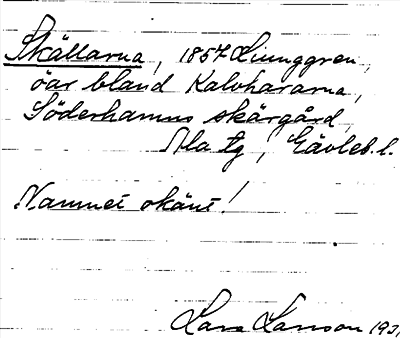 Skällarna, 1857 Ljunggren,
öar bland Kalvhararna,
Söderhamns skärgård,
Ala tg, Gävleb. l.
Namnet okänt!
Lars Larson 193